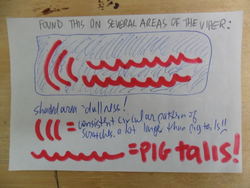 FOUND THIS ON SEVERAL AREAS OF THE VIPER:
shaded area = dullness!
= consistent circular pattern of
scratches. a lot larger than pig tails!!
= PIG tails!